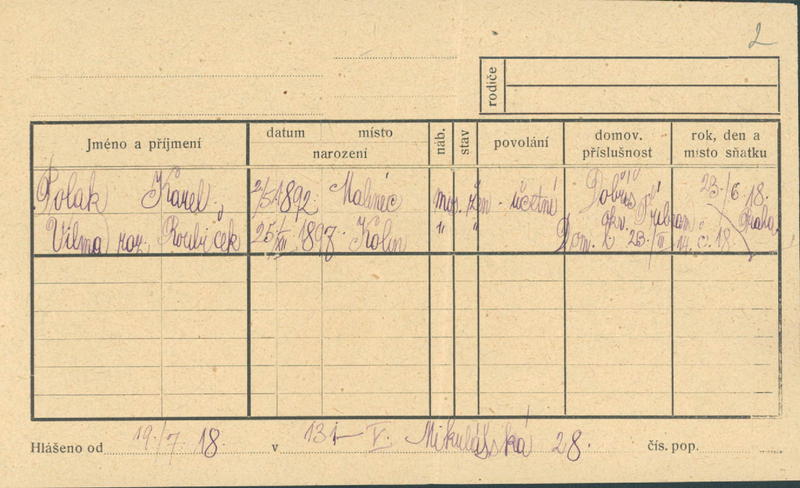 2
rodiče
Jméno a příjmení datum místo narození náb. stav povolání domov. příslušnost rok, den a místo sňatku
Polak Karel 2/5 1892 Malinéc mos. žen. účetní Dobříš 23./6. 18.
Vilma roz. Roubiček 25/XII 1897 Kolín " " okr. Příbram Praha
Dom. l. 23./III 14. č. 18.
Hlášeno od 19./7. 18. v 131-V. Mikulášská 28. čís. pop.